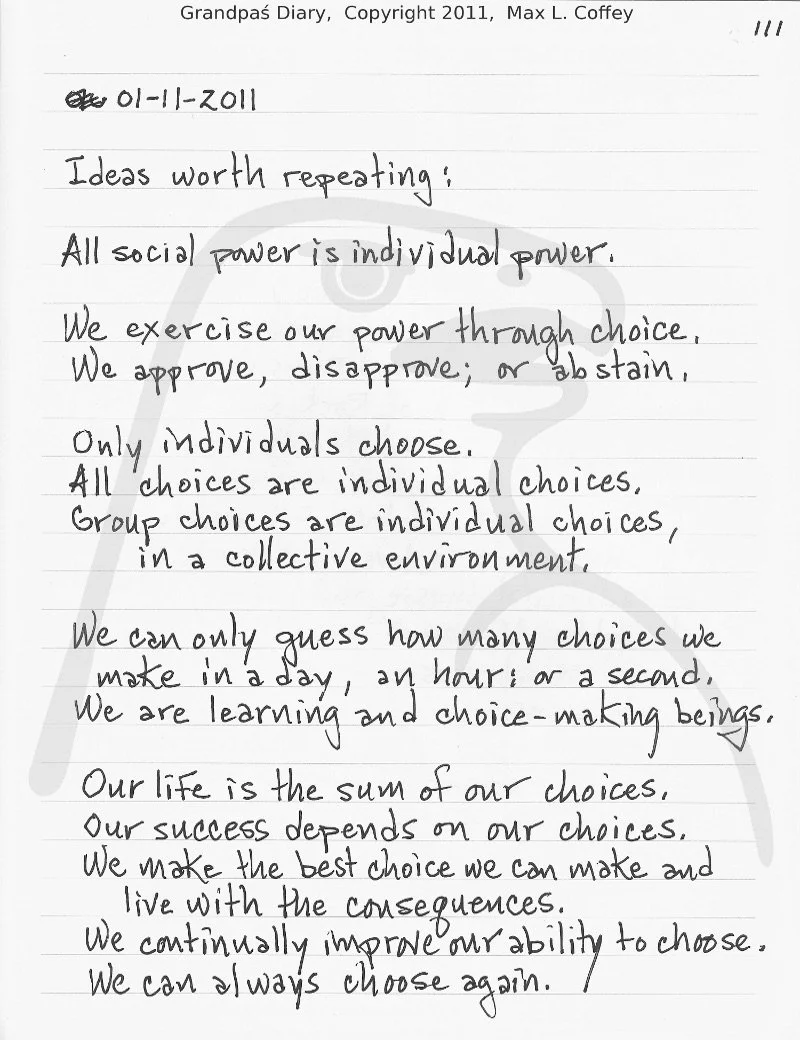 Grandpaś Diary, Copyright 2011, Max L. Coffey
111
01-11-2011
Ideas worth repeating:
All social power is individual power.
We exercise our power through choice.
We approve, disapprove; or abstain.
Only individuals choose.
All choices are individual choices.
Group choices are individual choices,
in a collective environment.
We can only guess how many choices we
make in a day, an hour; or a second.
We are learning and choice-making beings.
Our life is the sum of our choices.
Our success depends on our choices.
We make the best choice we can make and
live with the consequences.
We continually improve our ability to choose.
We can always choose again.